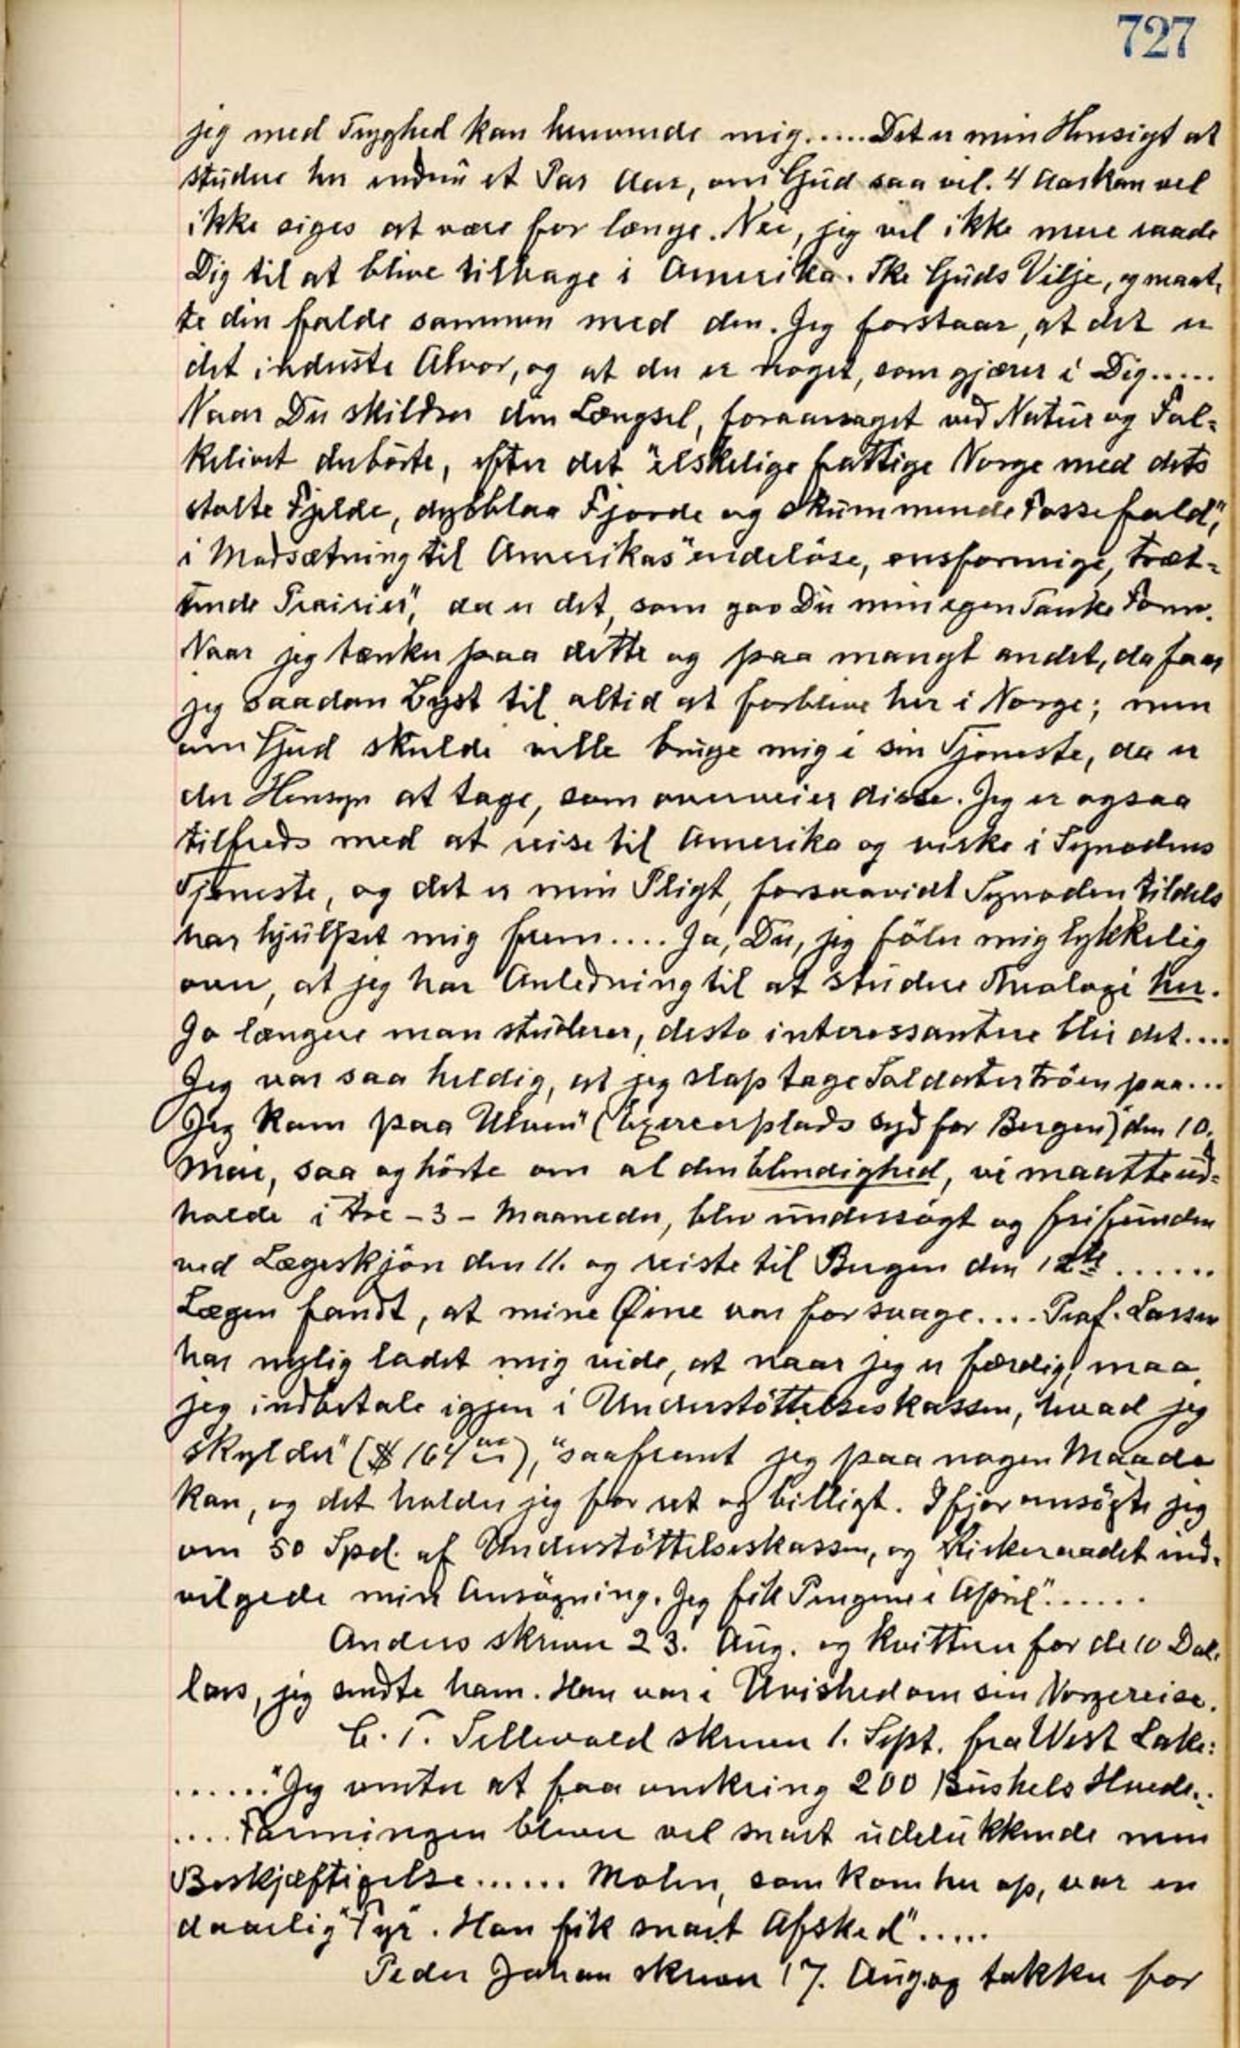 727
jeg med Tryghed kan henvende mig..... Det er min Hensigt at
studere her endnu et Par Aar, om Gud saa vil. 4 Aar kan vel
ikke siges at være for længe. Nei, jeg vil ikke mere raade
Dig til at blive tilbage i Amerika. Ske Guds Vilje, og maat-
te din falde sammen med den. Jeg forstaar, at det er
det inderste Alvor, og at der er noget, som gjærer i Dig.....
Naar Du skildrer din Længsel, foraarsaget ved Natur og Fol-
kelivet derborte, efter det "elskelige fattige Norge med dets
stolte Fjelde, dybblaa Fjorde og skummende Fossefald",
i Modsætning til Amerikas "endelöse, ensformige, træt-
tende Prairier", da er det, som gav Du min egen Tanke Form.
Naar jeg tænker paa dette og paa mangt andet, da faar
jeg saadan Lyst til altid at forblive her i Norge; men
om Gud skulde ville bruge mig i sin Tjeneste, da er
der Hensyn at tage, som overveier disse. Jeg er ogsaa
tilfreds med at reise til Amerika og virke i Synodens
Tjeneste, og det er min Pligt, forsaavidt Synoden tildels
har hjulpet mig frem.... Ja, Du, jeg föler mig lykkelig
over, at jeg har Anledning til at studere Theologi her.
Jo længere man studerer, desto interessantere blir det....
Jeg var saa heldig, at jeg slap tage Soldatertröien paa...
Jeg kom paa Ulven" (Exercerplads syd for Bergen) "den 10.
Mai, saa og hörte om al den Elendighed, vi maatte ud-
holde i tre - 3 - Maaneder, blev undersögt og frifunden
ved Lægeskjön den 11. og reiste til Bergen den 12te......
Lægen fandt, at mine Øine var for svage.... Prof. Larsen
har nylig ladet mig vide, at naar jeg er færdig, maa
jeg indbetale igjen i Understöttelseskassen, hvad jeg
skylder" ($164), "saafremt jeg paa nogen Maade
kan, og det holder jeg for ret og billigt. I fjor ansögte jeg
om 50 Spd. af Understöttelseskassen, og Kirkeraadet ind-
vilgede min Ansögning. Jeg fik Pengene i April"......
Anders skriver 23. Aug. og kvitterer for de 10 Dol-
lars, jeg sendte ham. Han var i Uvished om sin Norgereise.
C. T. Sellevold skriver 1. Sept. fra West Lake:
......"Jeg venter at faa omkring 200 Bushels Hvede..
.... Farmingen bliver vel snart udelukkende min
Beskjæftigelse...... Mohn, som kom her op, var en
daarlig "Fyr". Han fik snart Afsked".....
Peder Johan skriver 17. Aug. og takker for